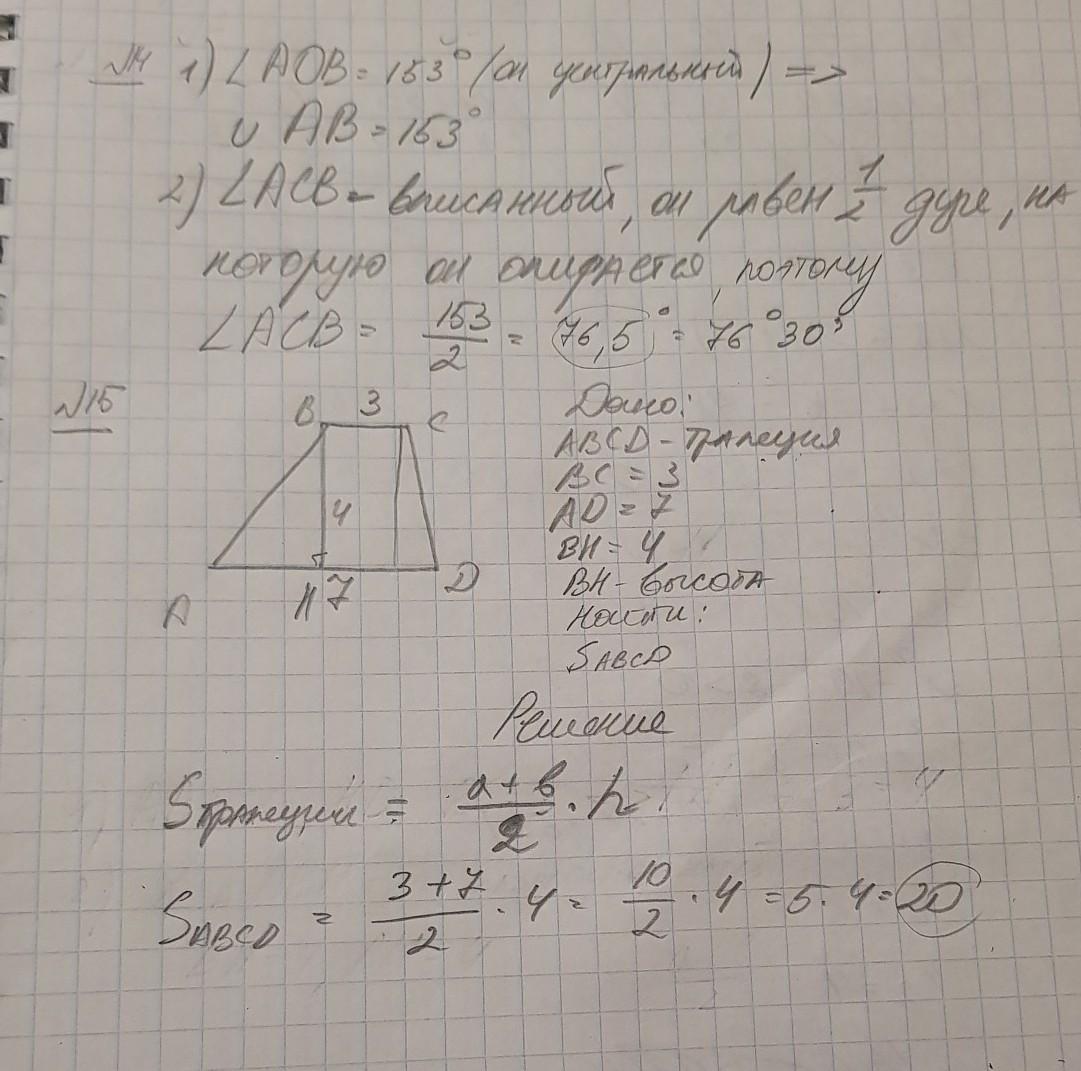 №14 1) ∠AOB = 153° (он центральный) =>
∪ AB = 153°
2) ∠ACB – вписанный, он равен 1/2 дуге, на
которую он опирается, поэтому
∠ACB = 153/2 = 76,5° = 76°30'
№15
B 3 C
4
A H 7 D
Дано:
ABCD – трапеция
BC = 3
AD = 7
BH = 4
BH – высота
Найти:
SABCD
Решение
Sтрапеции = a + b/2 · h
SABCD = 3 + 7/2 · 4 = 10/2 · 4 = 5 · 4 = 20